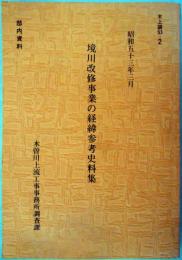 木上調53-2
昭和五十三年三月
境川改修事業の経緯参考史料集
部内資料
木曽川上流工事事務所調査課